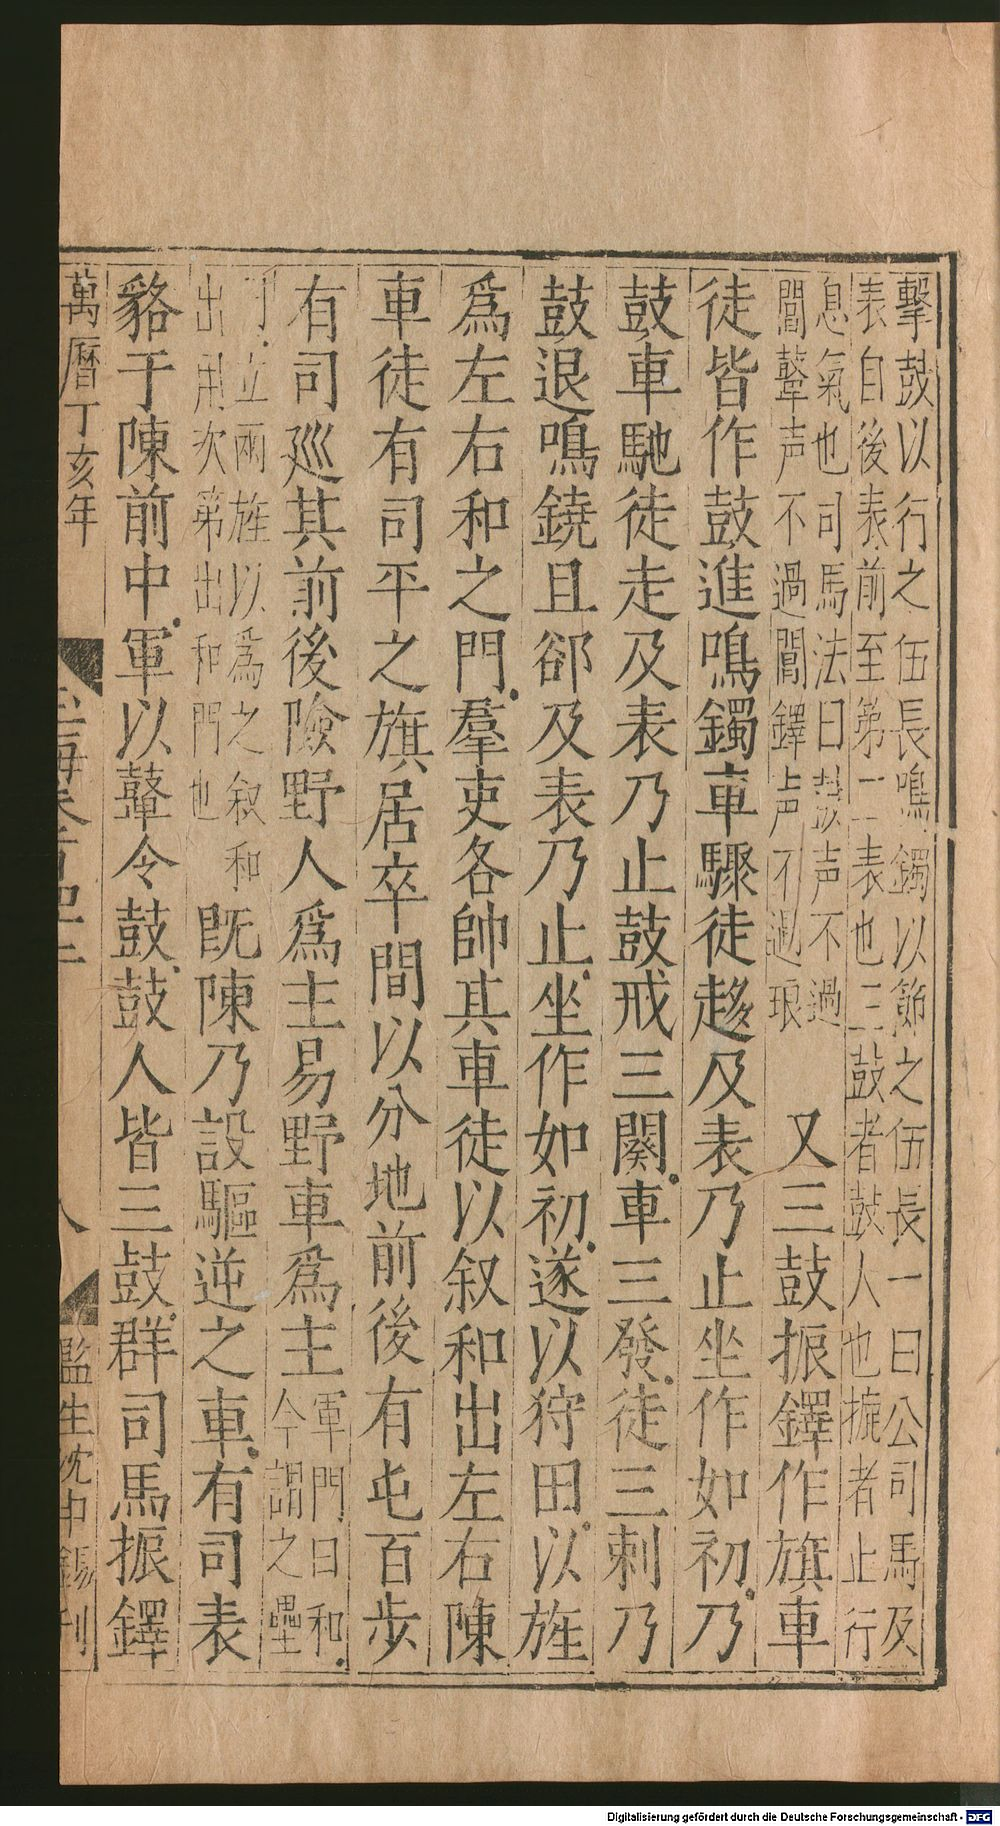 擊鼓以行之伍長鳴鐲以節之伍長一曰公司馬及
表自後表前至第二表也三鼓者鼓人也摝者止行
息氣也司馬法曰鼓声不過
閶鼙声不過闒鐸声不過琅
又三鼓振鐸作旗車
徒皆作鼓進鳴鐲車驟徒趍及表乃止坐作如初乃
鼓車馳徒走及表乃止鼓戒三闋車三發徒三刺乃
鼓退鳴鐃且卻及表乃止坐作如初遂以狩田以旌
爲左右和之門羣吏各帥其車徒以叙和出左右陳
車徒有司平之旗居卒間以分地前後有屯百步
有司廵其前後險野人爲主易野車爲主
軍門曰和
今謂之壘
門立兩旌以爲之叙和
出用次第出和門也
既陳乃設驅逆之車有司表
貉于陳前中軍以鼙令鼓鼓人皆三鼓群司馬振鐸
萬曆丁亥年
八
監生沈中錫刊
Digitalisierung gefördert durch die Deutsche Forschungsgemeinschaft - DFG